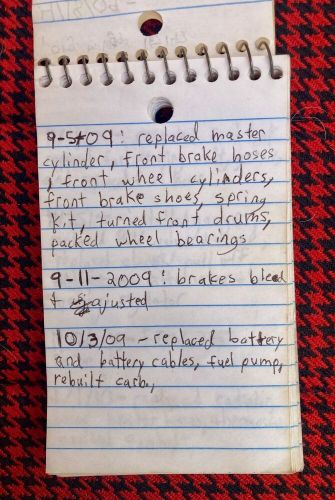 9-5-09: replaced master
cylinder, front brake hoses
, front wheel cylinders,
front brake shoes, spring
kit, turned front drums,
packed wheel bearings
9-11-2009: brakes bleed
+ ajusted
10/3/09 - replaced battery
and battery cables, fuel pump,
rebuilt carb.,